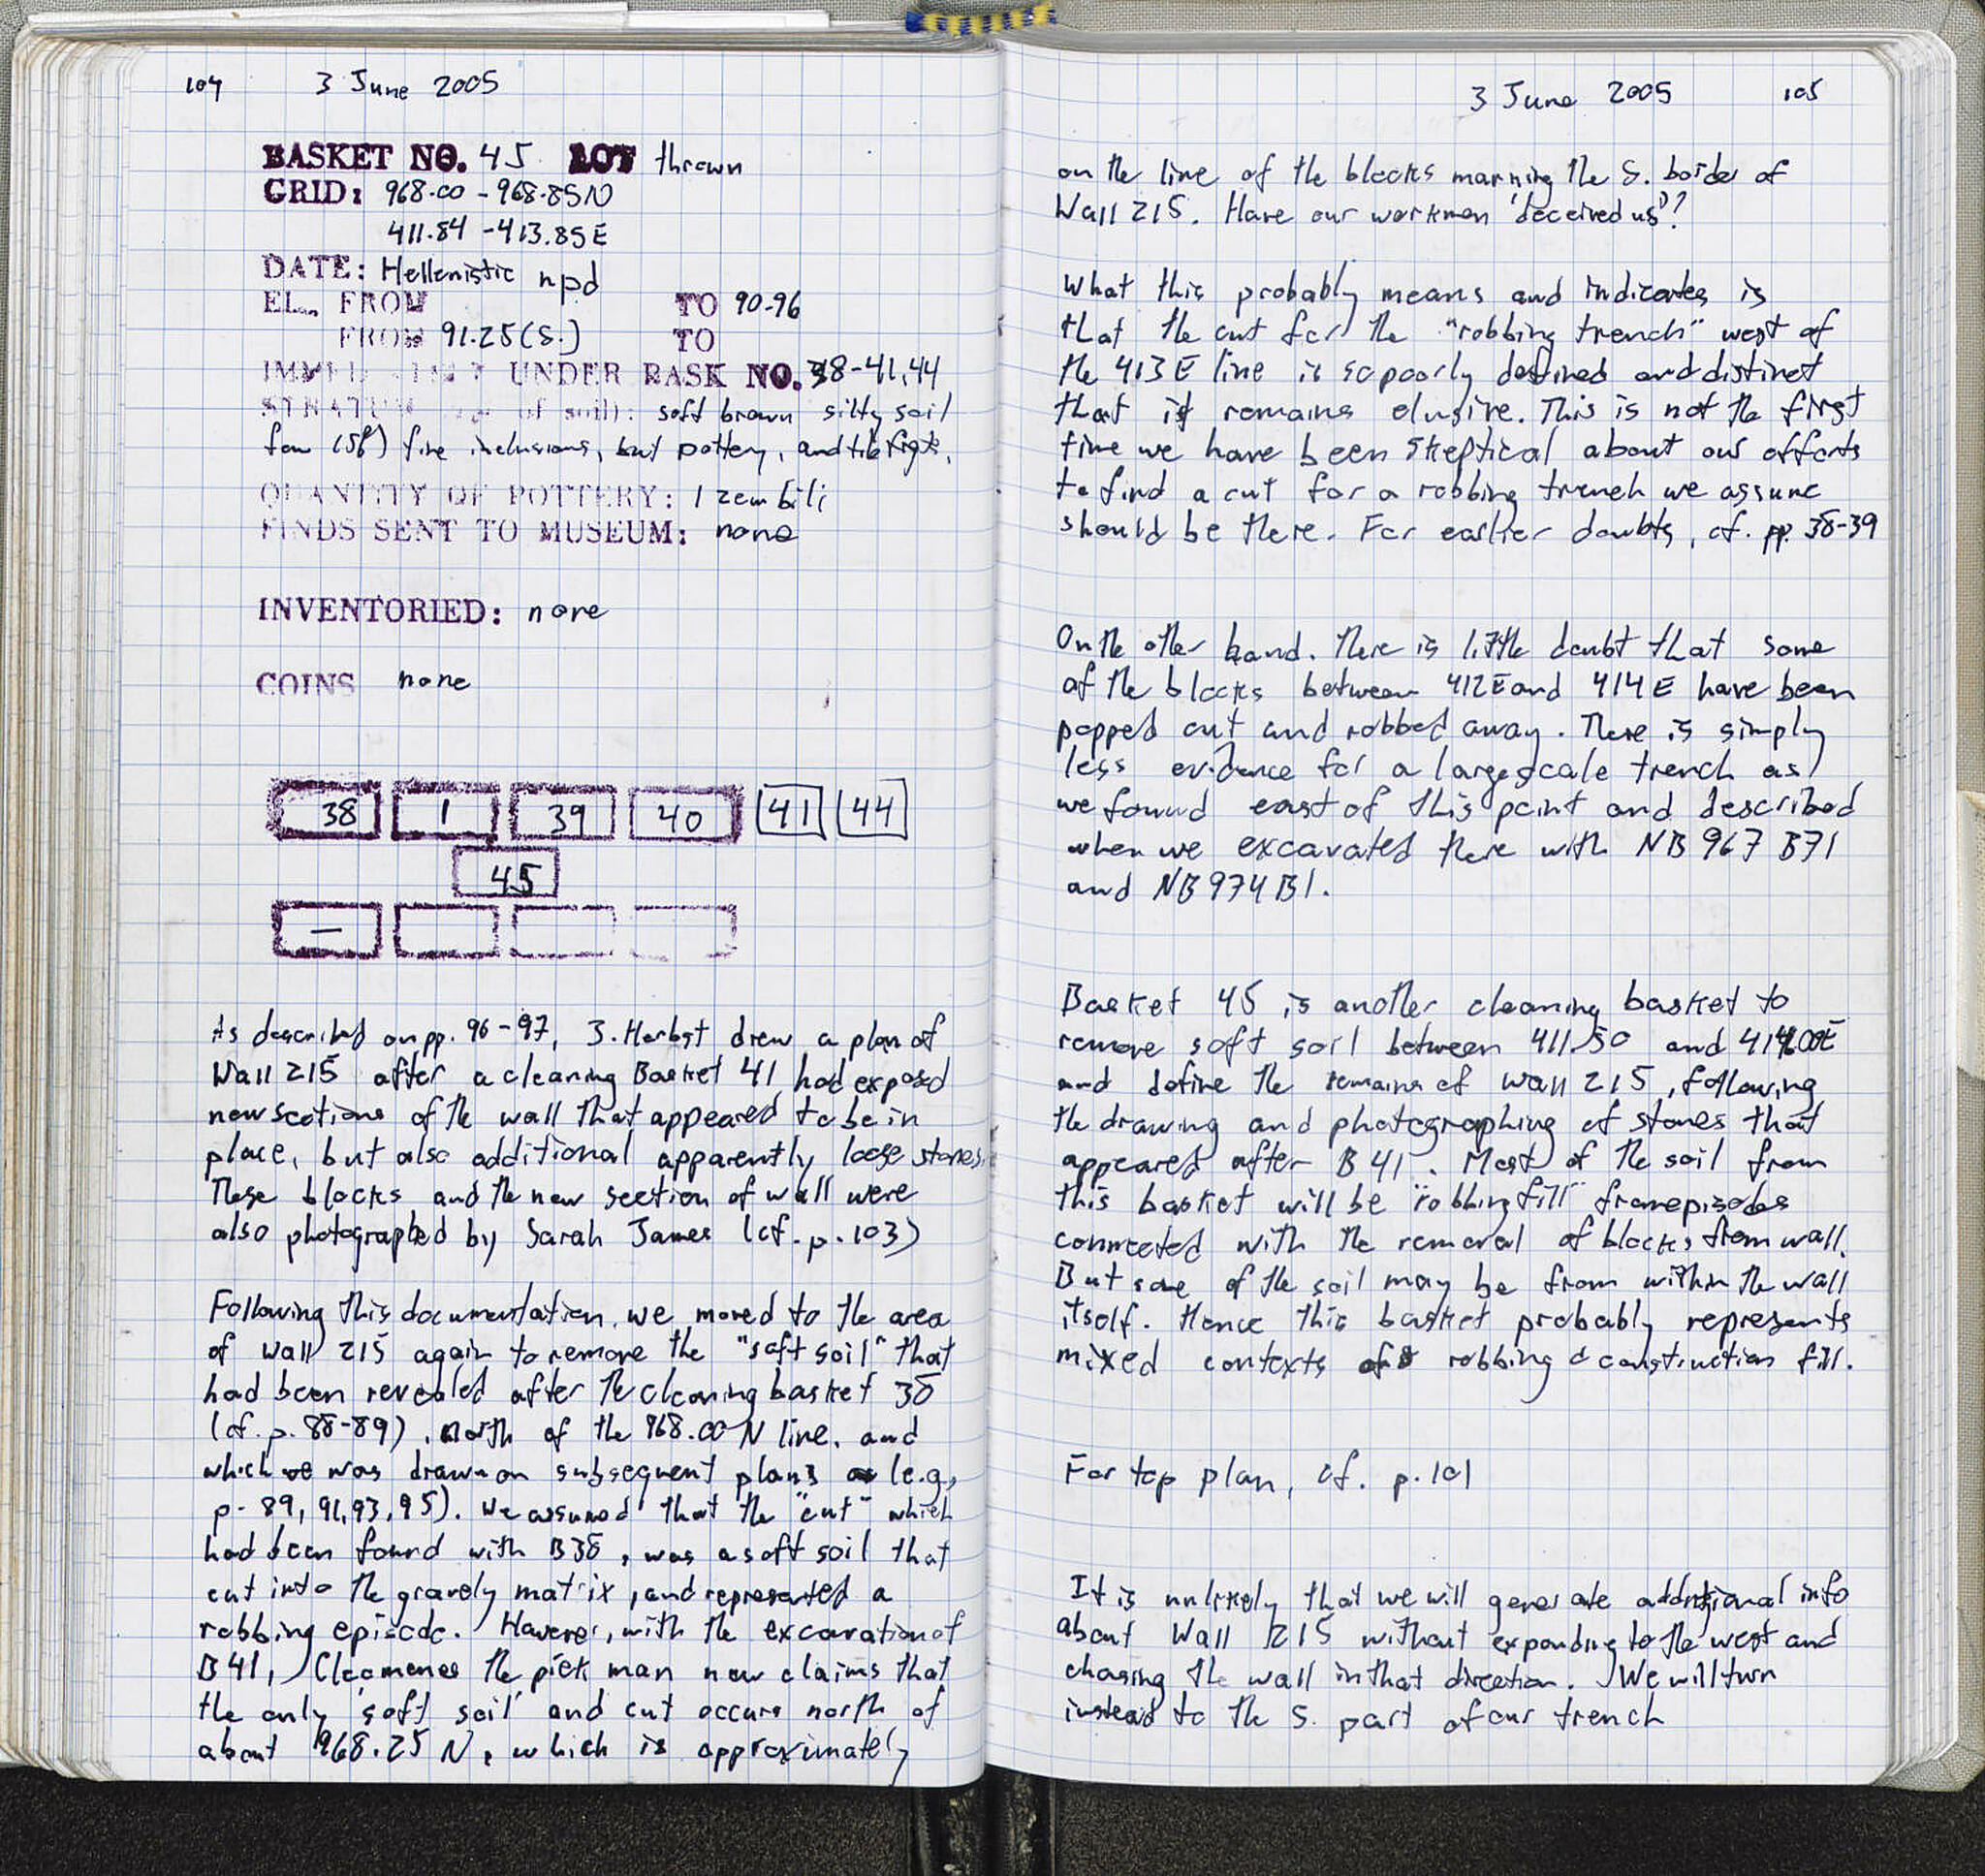 104 3 June 2005
BASKET NO. 45 LOT thrown
GRID: 968.00 - 968.85N
411.84 - 413.85E
DATE: Hellenistic npd
EL. FROM TO 90.96
FROM 91.25 (S.) TO
UNDER BASK NO. 38-41, 44
of soil): soft brown silty soil
few (5%) fine inclusions, but pottery, and tile frgts.
QUANTITY OF POTTERY: 1 zembili
FINDS SENT TO MUSEUM: none
INVENTORIED: none
COINS none
38 1 39 40 41 44
45
—
As described on pp. 96-97, J. Herbst drew a plan of
Wall 215 after a cleaning Basket 41 had exposed
new sections of the wall that appeared to be in
place, but also additional apparently loose stones.
These blocks and the new section of wall were
also photographed by Sarah James (cf. p. 103)
Following this documentation, we moved to the area
of Wall 215 again to remove the "soft soil" that
had been revealed after the cleaning basket 38
(cf. p. 88-89), north of the 968.00 N line, and
which we was drawn on subsequent plans (e.g,
p. 89, 91, 93, 95). We assumed that the "cut" which
had been found with B38, was a soft soil that
cut into the gravely matrix, and represented a
robbing episode. However, with the excavation of
B41, Cleomenes the pick man now claims that
the only 'soft soil' and cut occurs north of
about 968.25 N, which is approximately
3 June 2005 105
on the line of the blocks marking the S. border of
Wall 215. Have our workmen 'deceived us'?
What this probably means and indicates is
that the cut for the "robbing trench" west of
the 413 E line is so poorly defined and distinct
that it remains elusive. This is not the first
time we have been skeptical about our efforts
to find a cut for a robbing trench we assume
should be there. For earlier doubts, cf. pp. 38-39
On the other hand, there is little doubt that some
of the blocks between 412 E and 414 E have been
popped out and robbed away. There is simply
less evidence for a large scale trench as
we found east of this point and described
when we excavated there with NB 967 B71
and NB 974 B1.
Basket 45 is another cleaning basket to
remove soft soil between 411.50 and 414.00E
and define the remains of wall 215, following
the drawing and photographing of stones that
appeared after B41. Most of the soil from
this basket will be "robbing fill" from episodes
connected with the removal of blocks from wall.
But some of the soil may be from within the wall
itself. Hence this basket probably represents
mixed contexts of robbing & construction fill.
For top plan, cf. p. 101
It is unlikely that we will generate additional info
about Wall 215 without expanding to the west and
chasing the wall in that direction. We will turn
instead to the S. part of our trench